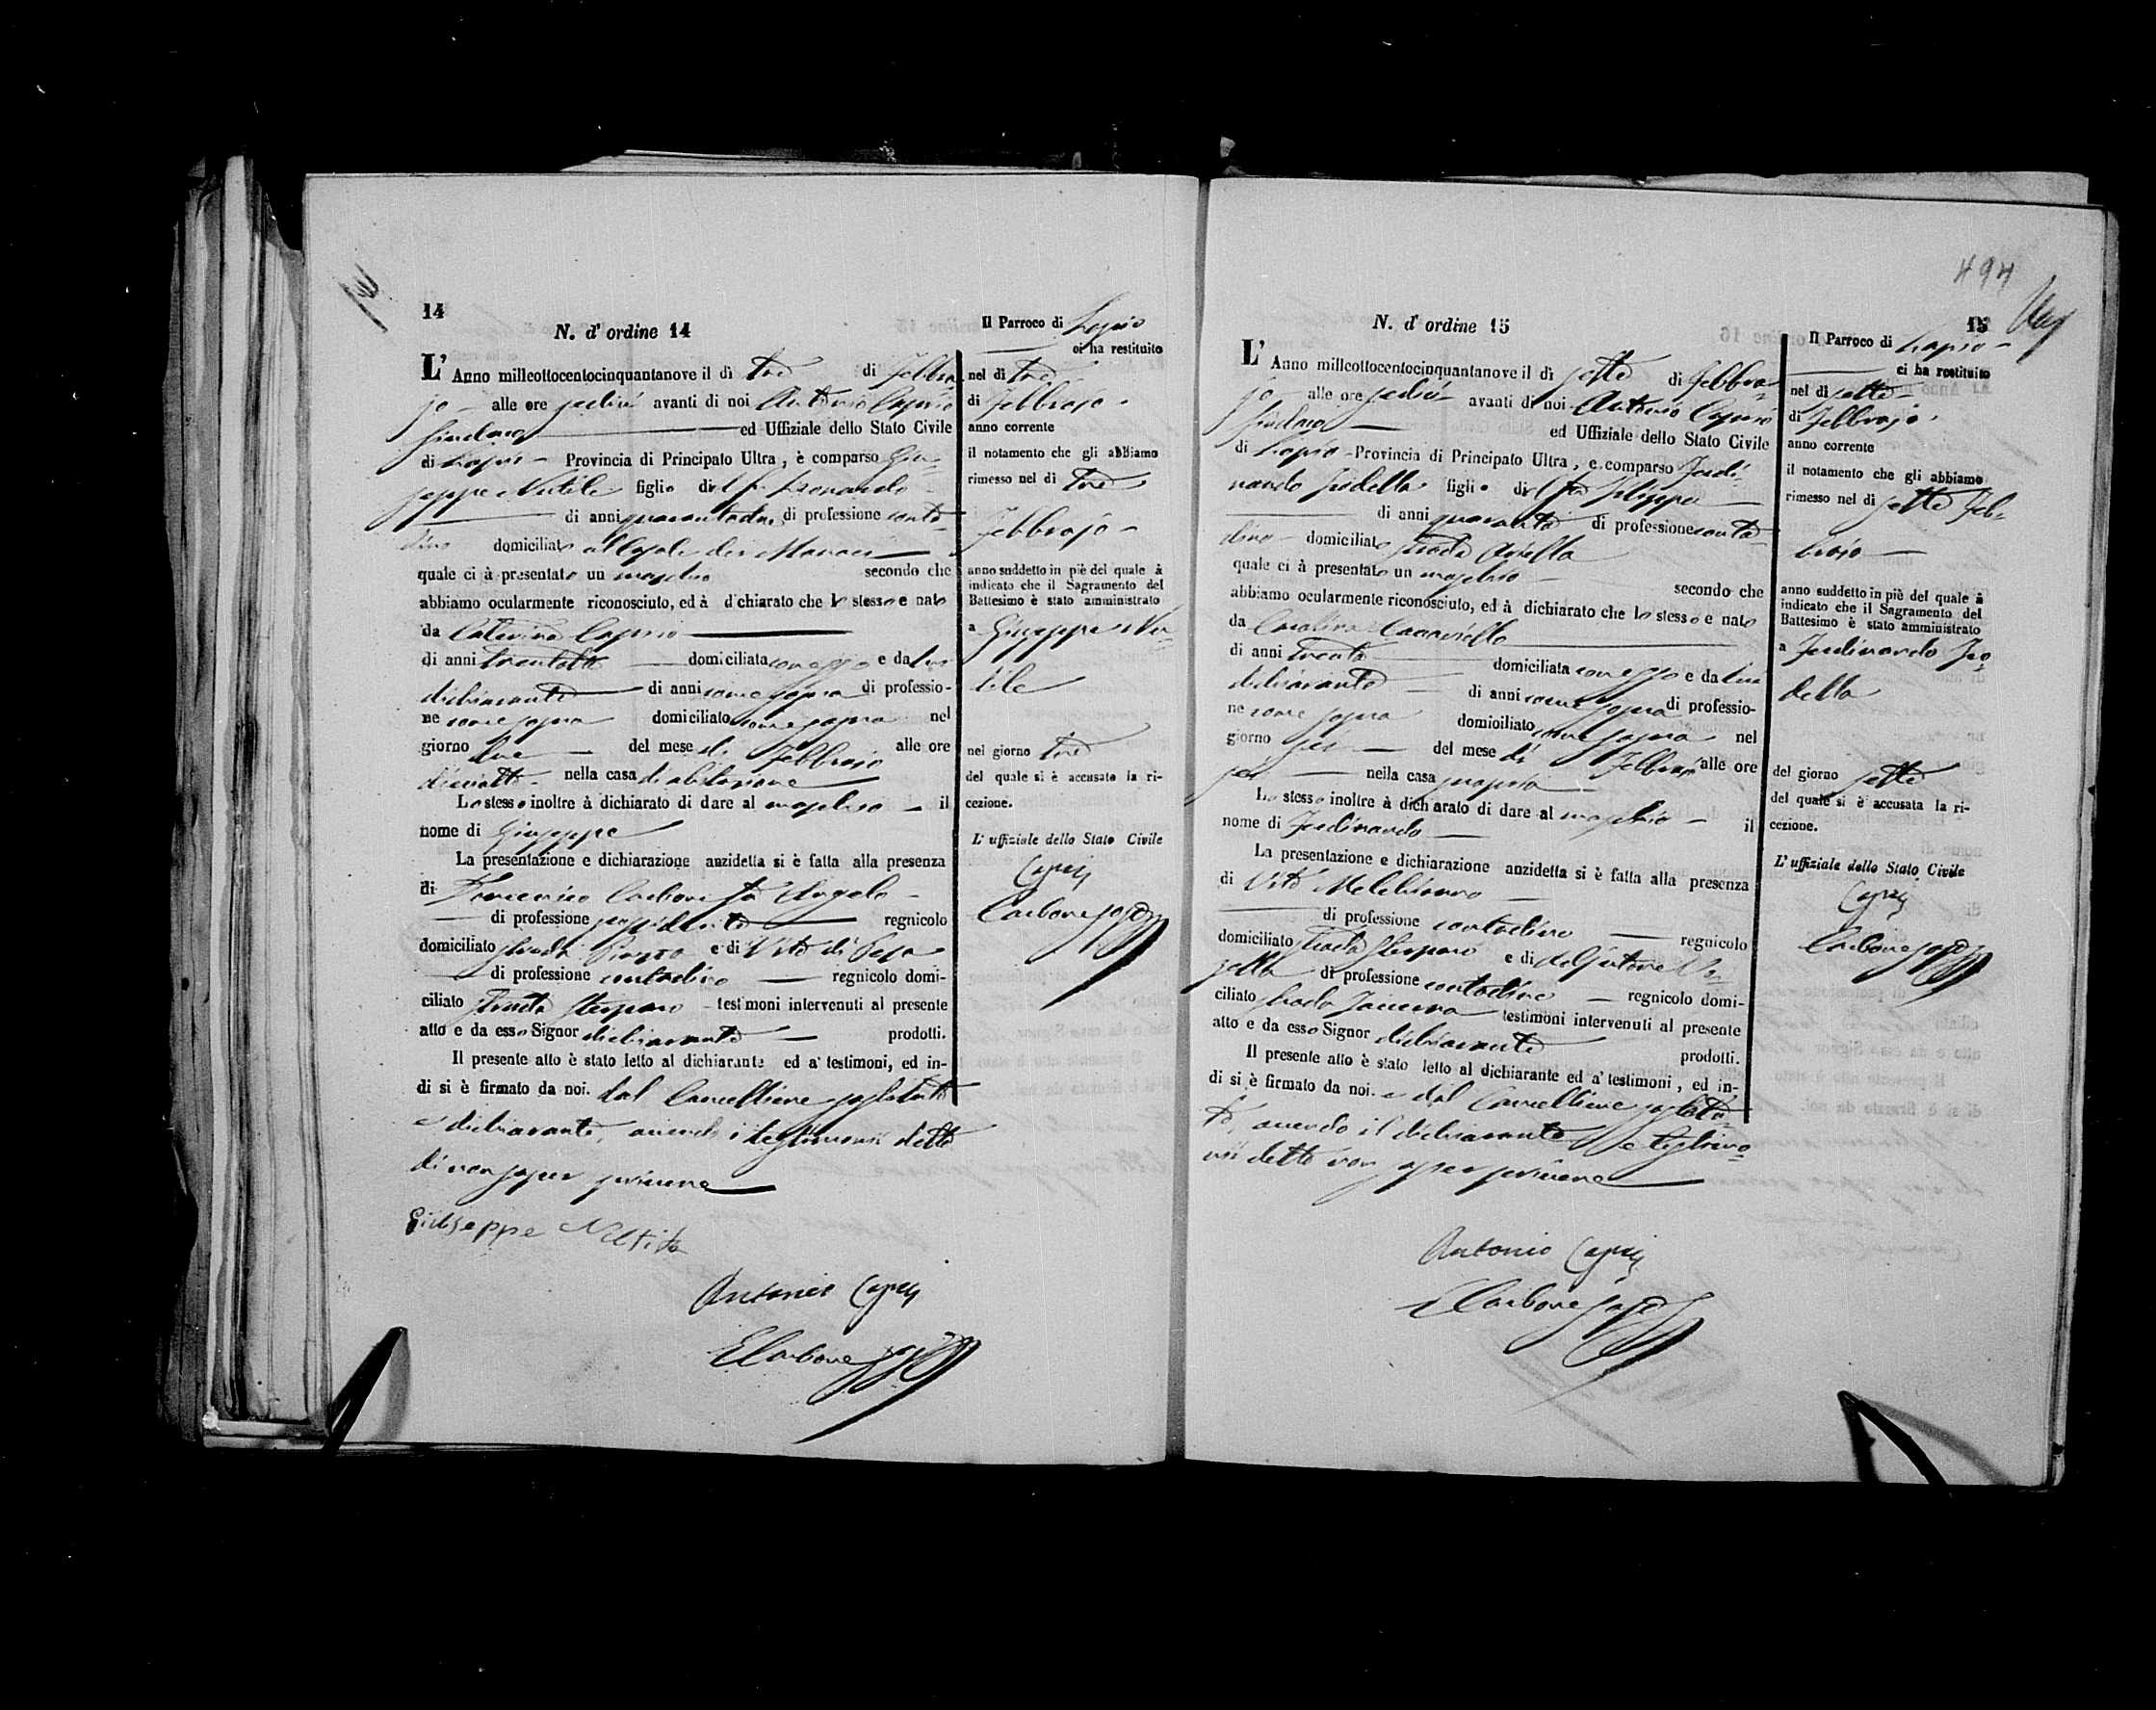 14
N. d' ordine 14
L' Anno millecottocentocinquantanove il dì tre di Febbra
jo alle ore sedici avanti di noi Antonio Caprio
Sindaco ed Uffiziale dello Stato Civile
di Lapio Provincia di Principato Ultra, è comparso Giu-
seppe Nutile figlio del fu Leonardo
di anni quarantadue di professione conta-
dino domiciliato al Casale dei
quale ci à presentato un maschio secondo che
abbiamo ocularmente riconosciuto, ed à dichiarato che lo stesso e nato
da Caterina Caprio
di anni trentotto domiciliata con esso e da lui
dichiarante di anni come sopra di professio-
ne come sopra domiciliato come sopra nel
giorno due del mese di Febbrajo alle ore
diciotto nella casa di abitazione
Lo stesso inoltre à dichiarato di dare al maschio il
nome di Giuseppe
La presentazione e dichiarazione anzidetta si è fatta alla presenza
di Domenico Carbone fu Angelo
di professione possidente regnicolo
domiciliato strada Piazza e di Vito di Pesa
di professione contadino regnicolo domi-
ciliato strada testimoni intervenuti al presente
atto e da esso Signor dichiarante prodotti.
Il presente atto è stato letto al dichiarante ed a' testimoni, ed in-
di si è firmato da noi. dal Cancelliere sostituto
e dichiarante, avendo i testimonii detto
di non saper scrivere
Giuseppe Nutile
Antonio Caprio
E Carbone
Il Parroco di Lapio
ci ha restituito
nel dì tre
di Febbrajo
anno corrente
il notamento che gli abbiamo
rimesso nel dì tre
Febbrajo
anno suddetto in piè del quale à
indicato che il Sagramento del
Battesimo è stato amministrato
a Giuseppe Nu-
tile
nel giorno tre
del quale si è accusato la ri-
cezione.
L' uffiziale dello Stato Civile
Caprio
Carbone
494
15
N. d' ordine 15
L' Anno millecottocentocinquantanove il dì sette di Febbra-
jo alle ore sedici avanti di noi Antonio Caprio
Sindaco ed Uffiziale dello Stato Civile
di Lapio Provincia di Principato Ultra, e comparso Ferdi-
nando figlio del fu Filippo
di anni quaranta di professione conta-
dino domiciliato strada
quale ci à presentato un maschio secondo che
abbiamo ocularmente riconosciuto, ed à dichiarato che lo stesso e nato
da Carolina
di anni trenta domiciliata con esso e da lui
dichiarante di anni come sopra di professio-
ne come sopra domiciliato come sopra nel
giorno sei del mese di Febbrajo alle ore
sei nella casa propria
Lo stesso inoltre à dichiarato di dare al maschio il
nome di Ferdinando
La presentazione e dichiarazione anzidetta si è fatta alla presenza
di Vito Melchionno
di professione contadino regnicolo
domiciliato strada e di Salvatore
di professione contadino regnicolo domi-
ciliato strada testimoni intervenuti al presente
atto e da esso Signor dichiarante prodotti.
Il presente atto è stato letto al dichiarante ed a' testimoni, ed in-
di si è firmato da noi. e dal Cancelliere sostitu-
to, avendo il dichiarante e testimo-
nii detto non saper scrivere
Antonio Caprio
E Carbone
Il Parroco di Lapio
ci ha restituito
nel dì sette
di Febbrajo
anno corrente
il notamento che gli abbiamo
rimesso nel dì sette Feb-
brajo
anno suddetto in piè del quale à
indicato che il Sagramento del
Battesimo è stato amministrato
a Ferdinando
della
del giorno sette
del quale si è accusata la ri-
cezione.
L' uffiziale dello Stato Civile
Caprio
Carbone